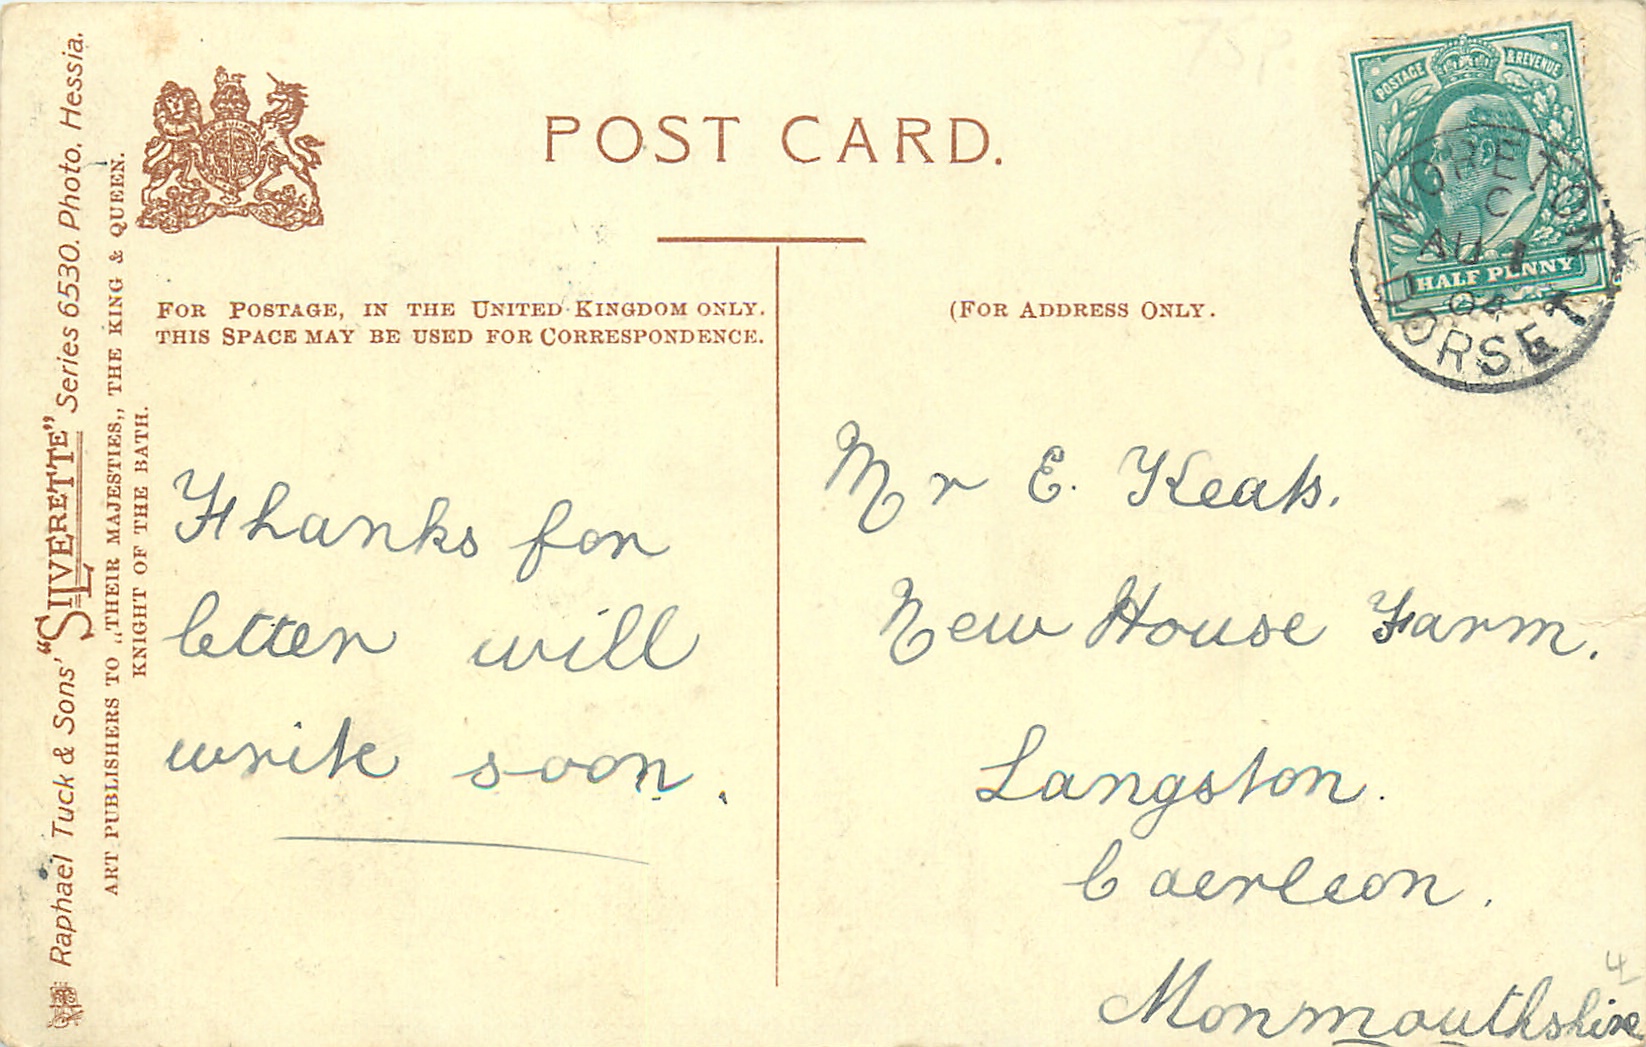 POST CARD.
FOR POSTAGE, IN THE UNITED KINGDOM ONLY.
THIS SPACE MAY BE USED FOR CORRESPONDENCE.
(FOR ADDRESS ONLY.
Thanks for
letter will
write soon.
Mr E. Keats.
New House Farm.
Langston.
Caerleon.
Monmouthshire
4
POSTAGE & REVENUE
HALF PENNY
MORETON
C
AU 1
04
DORSET
Raphael Tuck & Sons' "SILVERETTE" Series 6530. Photo. Hessia.
ART PUBLISHERS TO „THEIR MAJESTIES„ THE KING & QUEEN.
KNIGHT OF THE BATH.